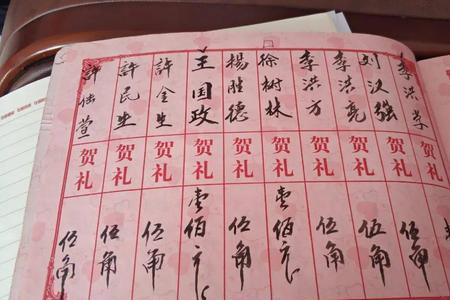 李洪学 贺礼
刘汉强 贺礼 伍角
李洪亮 贺礼 伍角
李洪方 贺礼 伍角
徐树林 贺礼 壹佰元
楊胜德 贺礼 伍角
王国政 贺礼 壹佰元
許金生 贺礼 伍角
許民生 贺礼 伍角
許传萱 贺礼 伍角